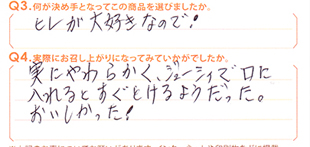 Q3.何が決め手となってこの商品を選びましたか。
ヒレが大好きなので!
Q4.実際にお召し上がりになってみていかがでしたか。
実にやわらかく、ジューシィで口に
入れるとすぐとけるようだった。
おいしかった!